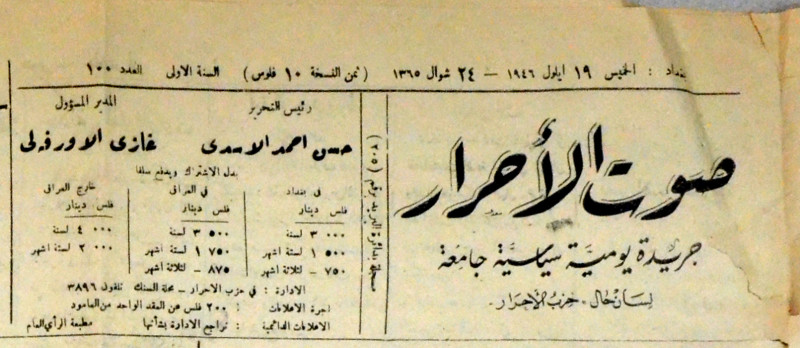 بغداد : الخميس ١٩ ايلول ١٩٤٦ – ٢٤ شوال ١٣٦٥ (ثمن النسخة ١٠ فلوس) السنة الاولى العدد ١٠٠
صوت الأحرار
جريدة يومية سياسية جامعة
لسان حال . حزب الأحرار .
مسجلة بدائرة البريد برقم (٢٠٥)
رئيس التحرير
حسن احمد الاسدي
المدير المسؤول
غازي الاورفه لي
بدل الاشتراك ويدفع سلفا
في بغداد
فلس دينار
٠٠٠ ٣ لسنة
٥٠٠ ١ لستة اشهر
٧٥٠ – لثلاثة اشهر
في العراق
فلس دينار
٥٠٠ ٣ لسنة
٧٥٠ ١ لستة اشهر
٨٧٥ – لثلاثة اشهر
خارج العراق
فلس دينار
٠٠٠ ٤ لسنة
٠٠٠ ٢ لستة اشهر
الادارة : في حزب الاحرار – محلة السنك تلفون ٣٨٩٦
اجرة الاعلانات : ٢٠٠ فلس عن العقد الواحد من العامود
الاعلانات الدائمية : تراجع الادارة بشأنها
مطبعة الرأي العام